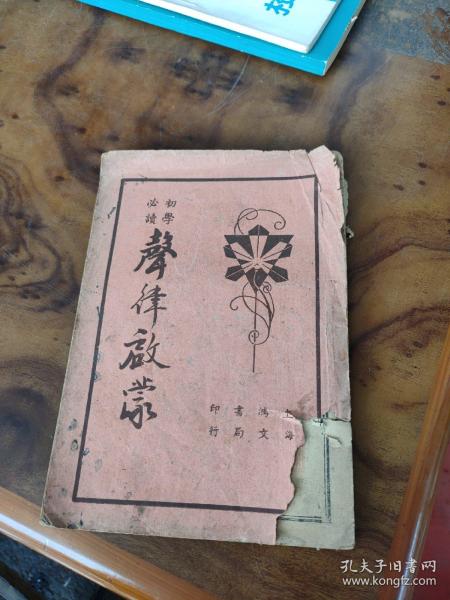 初學
必讀
聲律啟蒙
上海
鴻文
書局
印行
孔夫子旧书网
www.kongfz.com